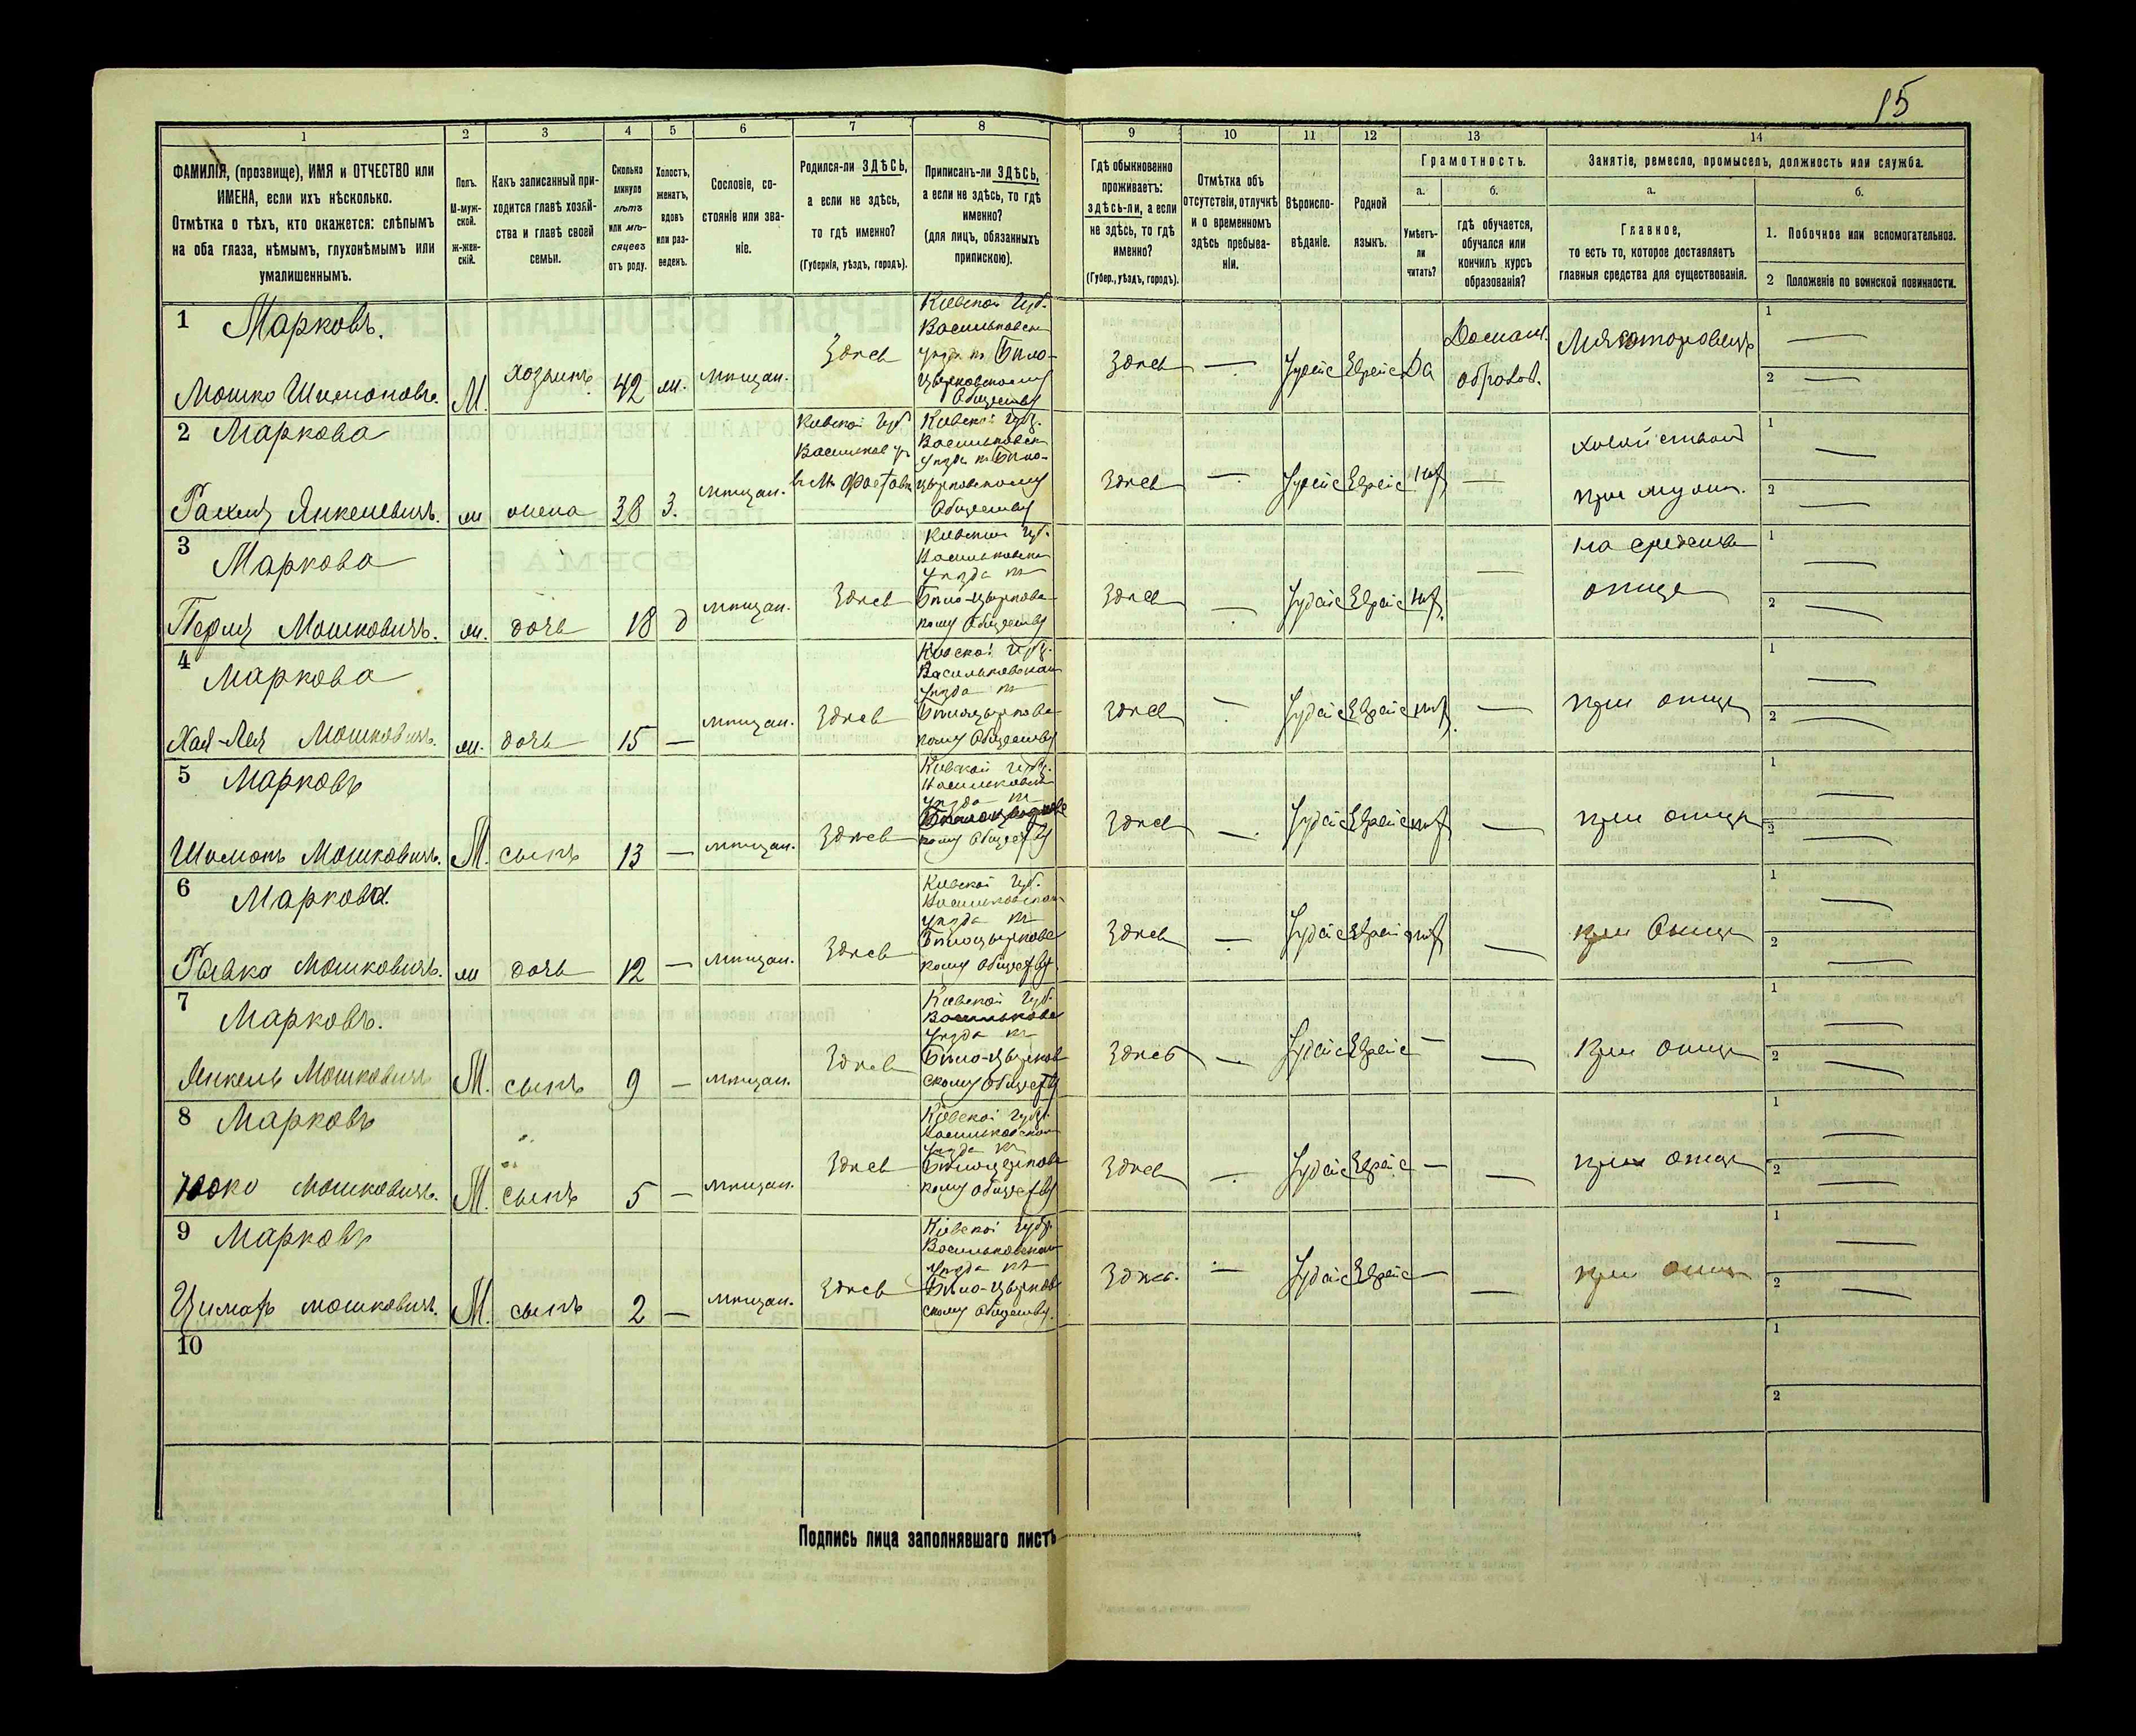 15
1 2 3 4 5 6 7 8 9 10 11 12 13 14
ФАМИЛІЯ, (прозвище), ИМЯ и ОТЧЕСТВО или
ИМЕНА, если ихъ нѣсколько.
Отмѣтка о тѣхъ, кто окажется: слѣпымъ
на оба глаза, нѣмымъ, глухонѣмымъ или
умалишеннымъ.
Полъ.
М-муж-
ской.
ж-жен-
скій.
Какъ записанный при-
ходится главѣ хозяй-
ства и главѣ своей
семьи.
Сколько
минуло
лѣтъ
или мѣ-
сяцевъ
отъ роду.
Холостъ,
женатъ,
вдовъ
или раз-
веденъ.
Сословіе, со-
стояніе или зва-
ніе.
Родился-ли ЗДѢСЬ,
а если не здѣсь,
то гдѣ именно?
(Губернія, уѣздъ, городъ).
Приписанъ-ли ЗДѢСЬ,
а если не здѣсь, то гдѣ
именно?
(для лицъ, обязанныхъ
припискою).
Гдѣ обыкновенно
проживаетъ:
здѣсь-ли, а если
не здѣсь, то гдѣ
именно?
(Губер., уѣздъ, городъ).
Отмѣтка объ
отсутствіи, отлучкѣ
и о временномъ
здѣсь пребыва-
ніи.
Вѣроиспо-
вѣданіе.
Родной
языкъ.
Грамотность.
а.
Умѣетъ-
ли
читать?
б.
гдѣ обучается,
обучался или
кончилъ курсъ
образованія?
Занятіе, ремесло, промыселъ, должность или служба.
а.
Главное,
то есть то, которое доставляетъ
главныя средства для существованія.
б.
1. Побочное или вспомогательное.
2 Положеніе по воинской повинности.
1 Марковъ.
Мошко Шимоновъ. М. хозяинъ 42 ж. мѣщан. Здѣсь
Кіевской Губ.
Васильковск
уѣзда къ Бѣло-
церковскому
Обществу
Здѣсь — Іудейс Еврейс Да
Домашн.
образов.
1 —
2 —
2 Маркова
Рахиля Янкелевичъ. ж жена 38 з. мѣщан.
Кіевской Губ
Васильков у
в м. Фастовѣ
Кіевской Губ.
Васильковск
уѣзда къ Бѣло-
церковскому
Обществу
Здѣсь — Іудейс Еврейс нѣт —
при муж.
1 —
2 —
3 Маркова
Перля Мошковичъ. ж. дочь 18 д мѣщан. Здѣсь
Кіевской Губ.
Васильковск
уѣзда къ
Бѣло-церковс
кому Обществу
Здѣсь — Іудейс Еврейс нѣт. —
на средства
отца
1 —
2 —
4 Маркова
Хая-Лея Мошковичъ. ж. дочь 15 — мѣщан. Здѣсь
Кіевской Губ.
Васильковскаго
уѣзда къ
Бѣлоцерковс
кому Обществу
Здѣсь — Іудейс Еврейс нѣт. —
при отцѣ
1 —
2 —
5 Марковъ
Шимонъ Мошковичъ. М. сынъ 13 — мѣщан. Здѣсь
Кіевской Губ.
Васильковск
уѣзда къ
Бѣлоцерковс
кому Обществу
Здѣсь — Іудейс Еврейс нѣт —
при отцѣ
1 —
2 —
6 Маркова.
Рывка Мошковичъ. ж дочь 12 — мѣщан. Здѣсь
Кіевской Губ.
Васильковскаго
уѣзда къ
Бѣлоцерковс
кому Обществу
Здѣсь — Іудейс Еврейс нѣт —
при Отцѣ
1 —
2 —
7 Марковъ.
Янкель Мошковичъ М. сынъ 9 — мѣщан. Здѣсь
Кіевской Губ.
Васильковс
уѣзда къ
Бѣло-церков
скому Обществу
Здѣсь — Іудейс Еврейс — —
при отцѣ
1 —
2 —
8 Марковъ
Мошковичъ. М. сынъ 5 — мѣщан. Здѣсь
Кіевской Губ.
Васильковскаго
уѣзда къ
Бѣлоцерковс
кому Обществу
Здѣсь — Іудейс Еврейс — —
при отцѣ
1 —
2 —
9 Марковъ
мошковичъ. М. сынъ 2 — мѣщан. Здѣсь
Кіевской Губ.
Васильковскаго
уѣзда къ
Бѣло-церков
скому Обществу.
Здѣсь. — Іудейс Еврейс — —
при отцѣ
1 —
2 —
10
1
2
Подпись лица заполнявшаго листъ